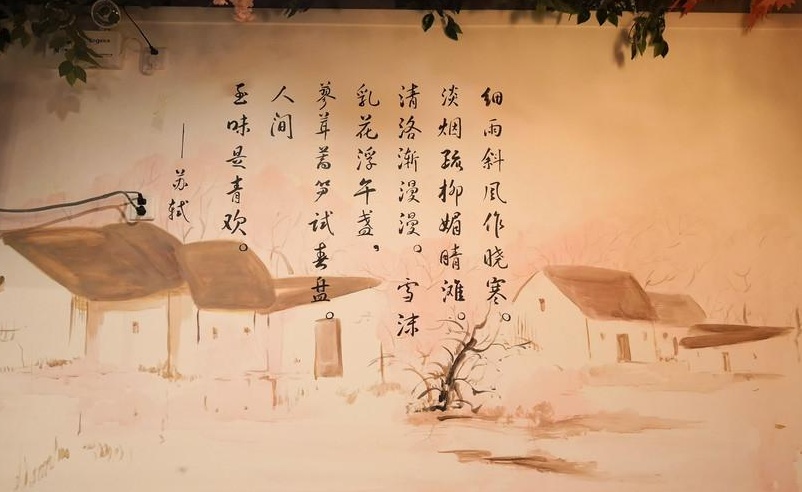 细雨斜风作晓寒。
淡烟疏柳媚晴滩。
清洛渐漫漫。雪沫
乳花浮午盏，
蓼茸蒿笋试春盘。
人间
至味是青欢。
——苏轼